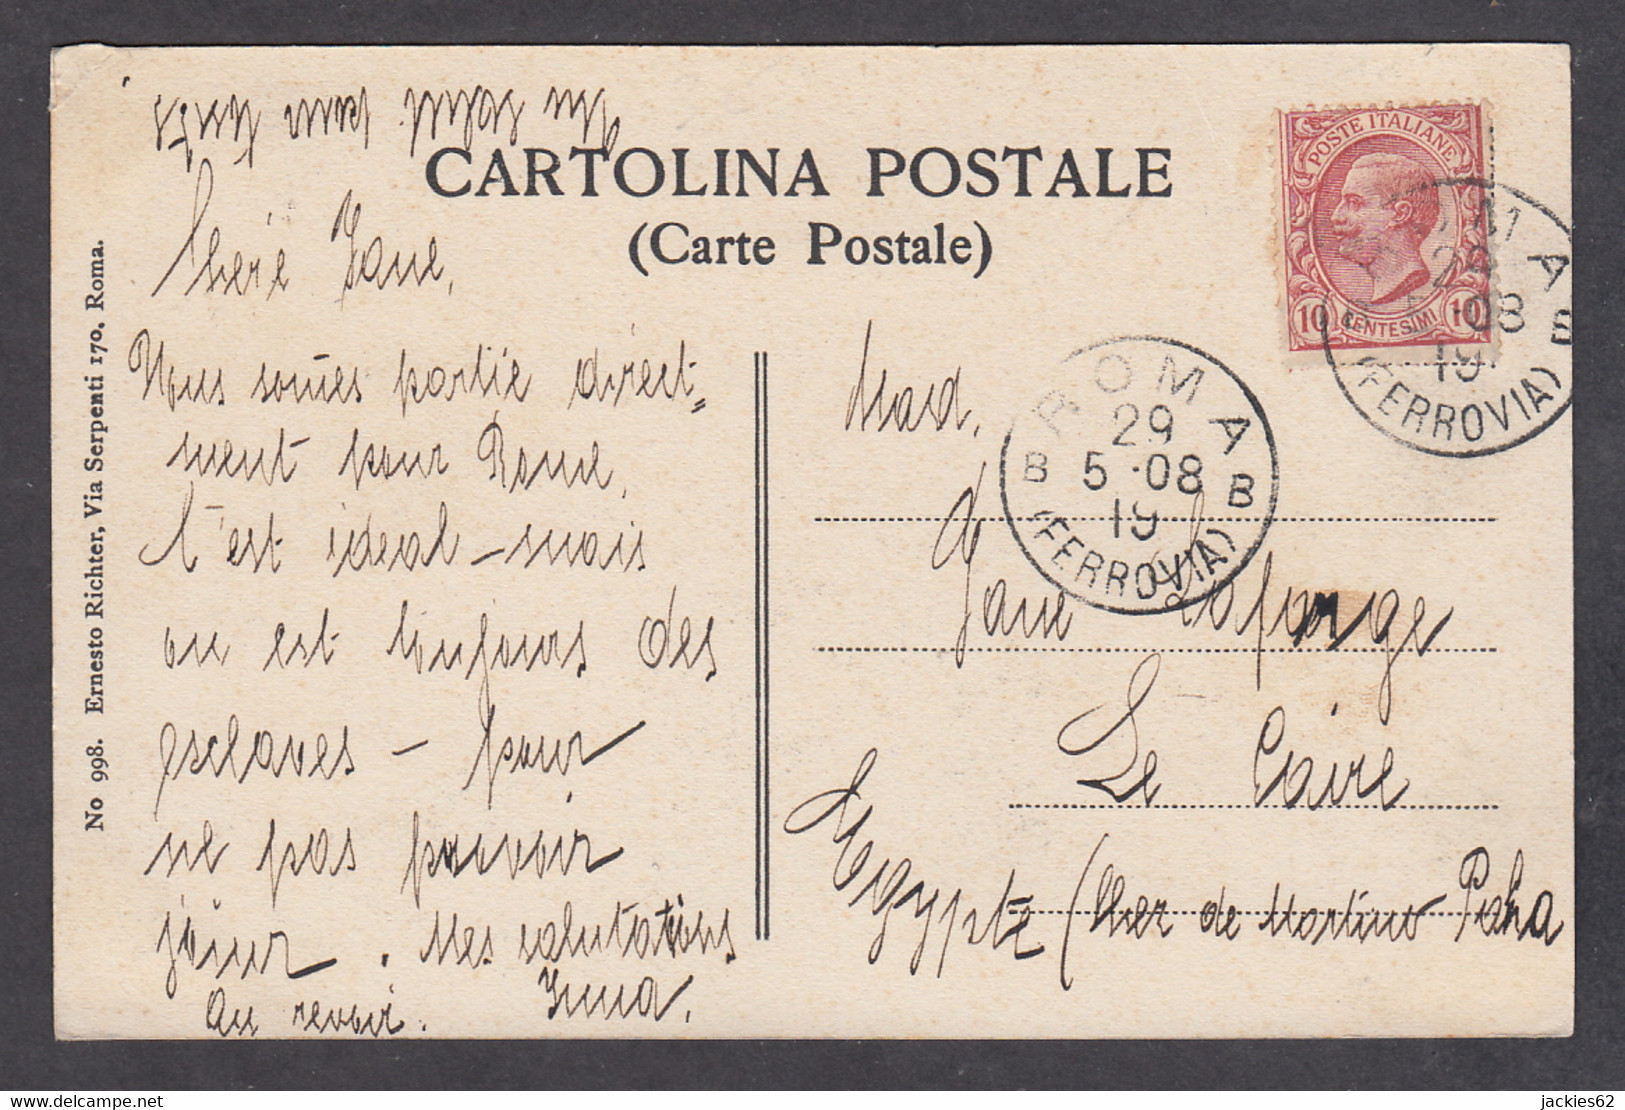 CARTOLINA POSTALE
(Carte Postale)
No 998. Ernesto Richter, Via Serpenti 170, Roma.
Cherie Jane,
Nous somes partie direct=
ment pour Rome.
C'est ideal - mais
on est toujours des
esclaves - pour
ne pas pouvoir
jouir. Mes salutations
Au revoir. Irma.
POSTE ITALIANE
10 CENTESIMI 10
ROMA
29
B 5 ·08 B
19
(FERROVIA)
A
29
·08 B
19
(FERROVIA)
Mad.
Jane Lafarge
Le Caire
Egypte (Cher de Martino Pasha
jackies62